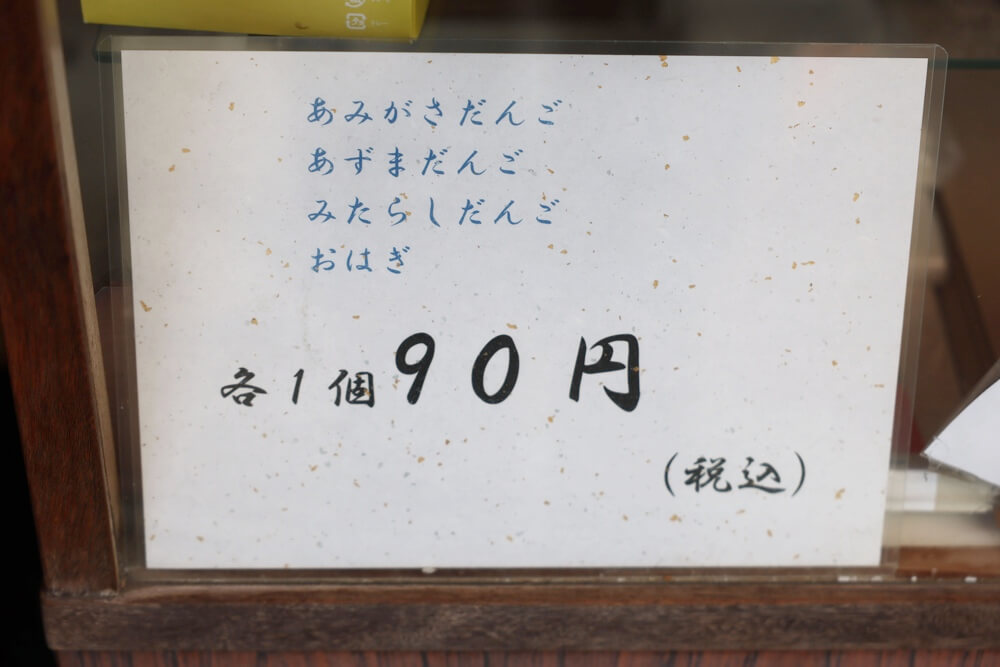 あみがさだんご
あずまだんご
みたらしだんご
おはぎ
各1個90円
(税込)